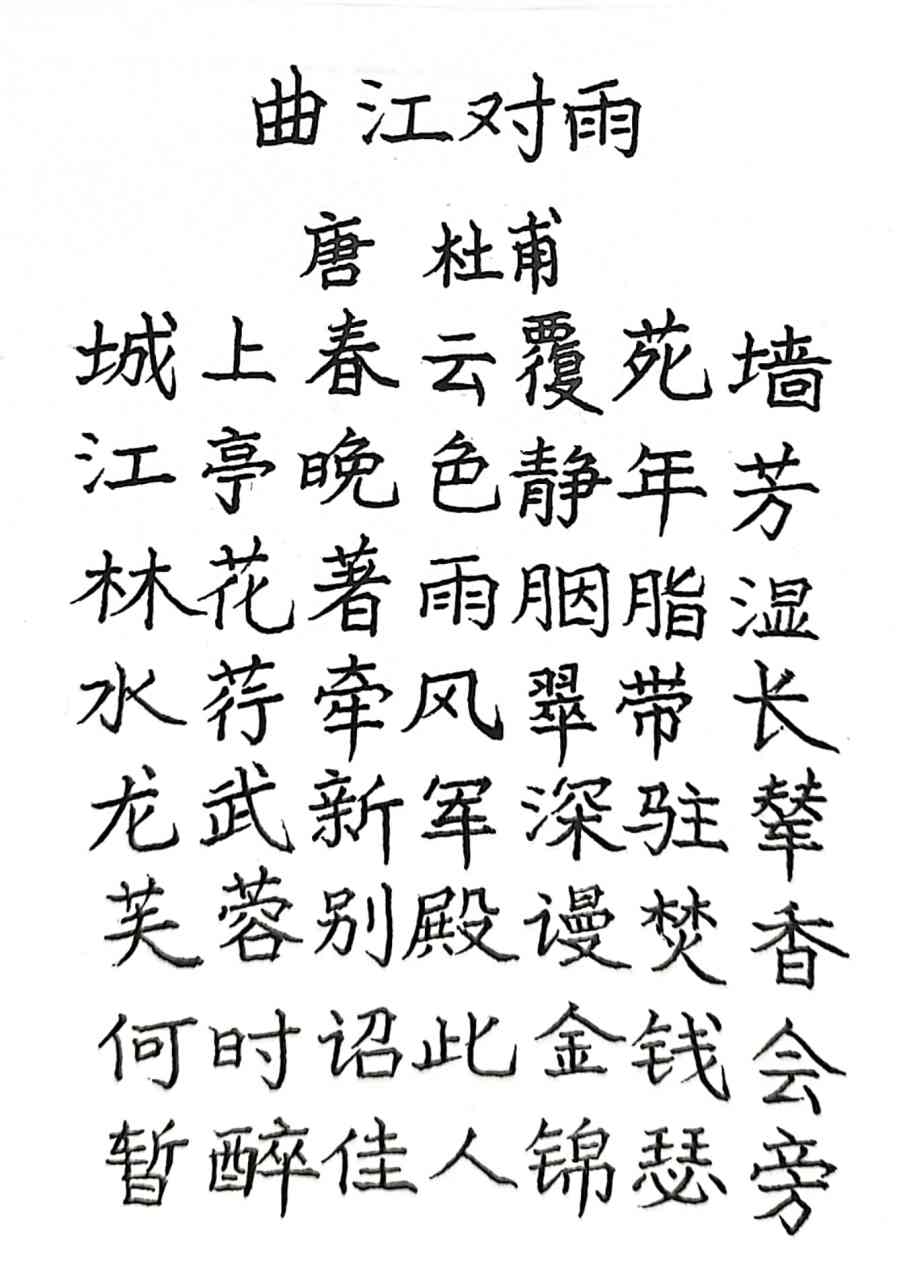 曲江对雨
唐 杜甫
城上春云覆苑墙
江亭晚色静年芳
林花著雨胭脂湿
水荇牵风翠带长
龙武新军深驻辇
芙蓉别殿谩焚香
何时诏此金钱会
暂醉佳人锦瑟旁